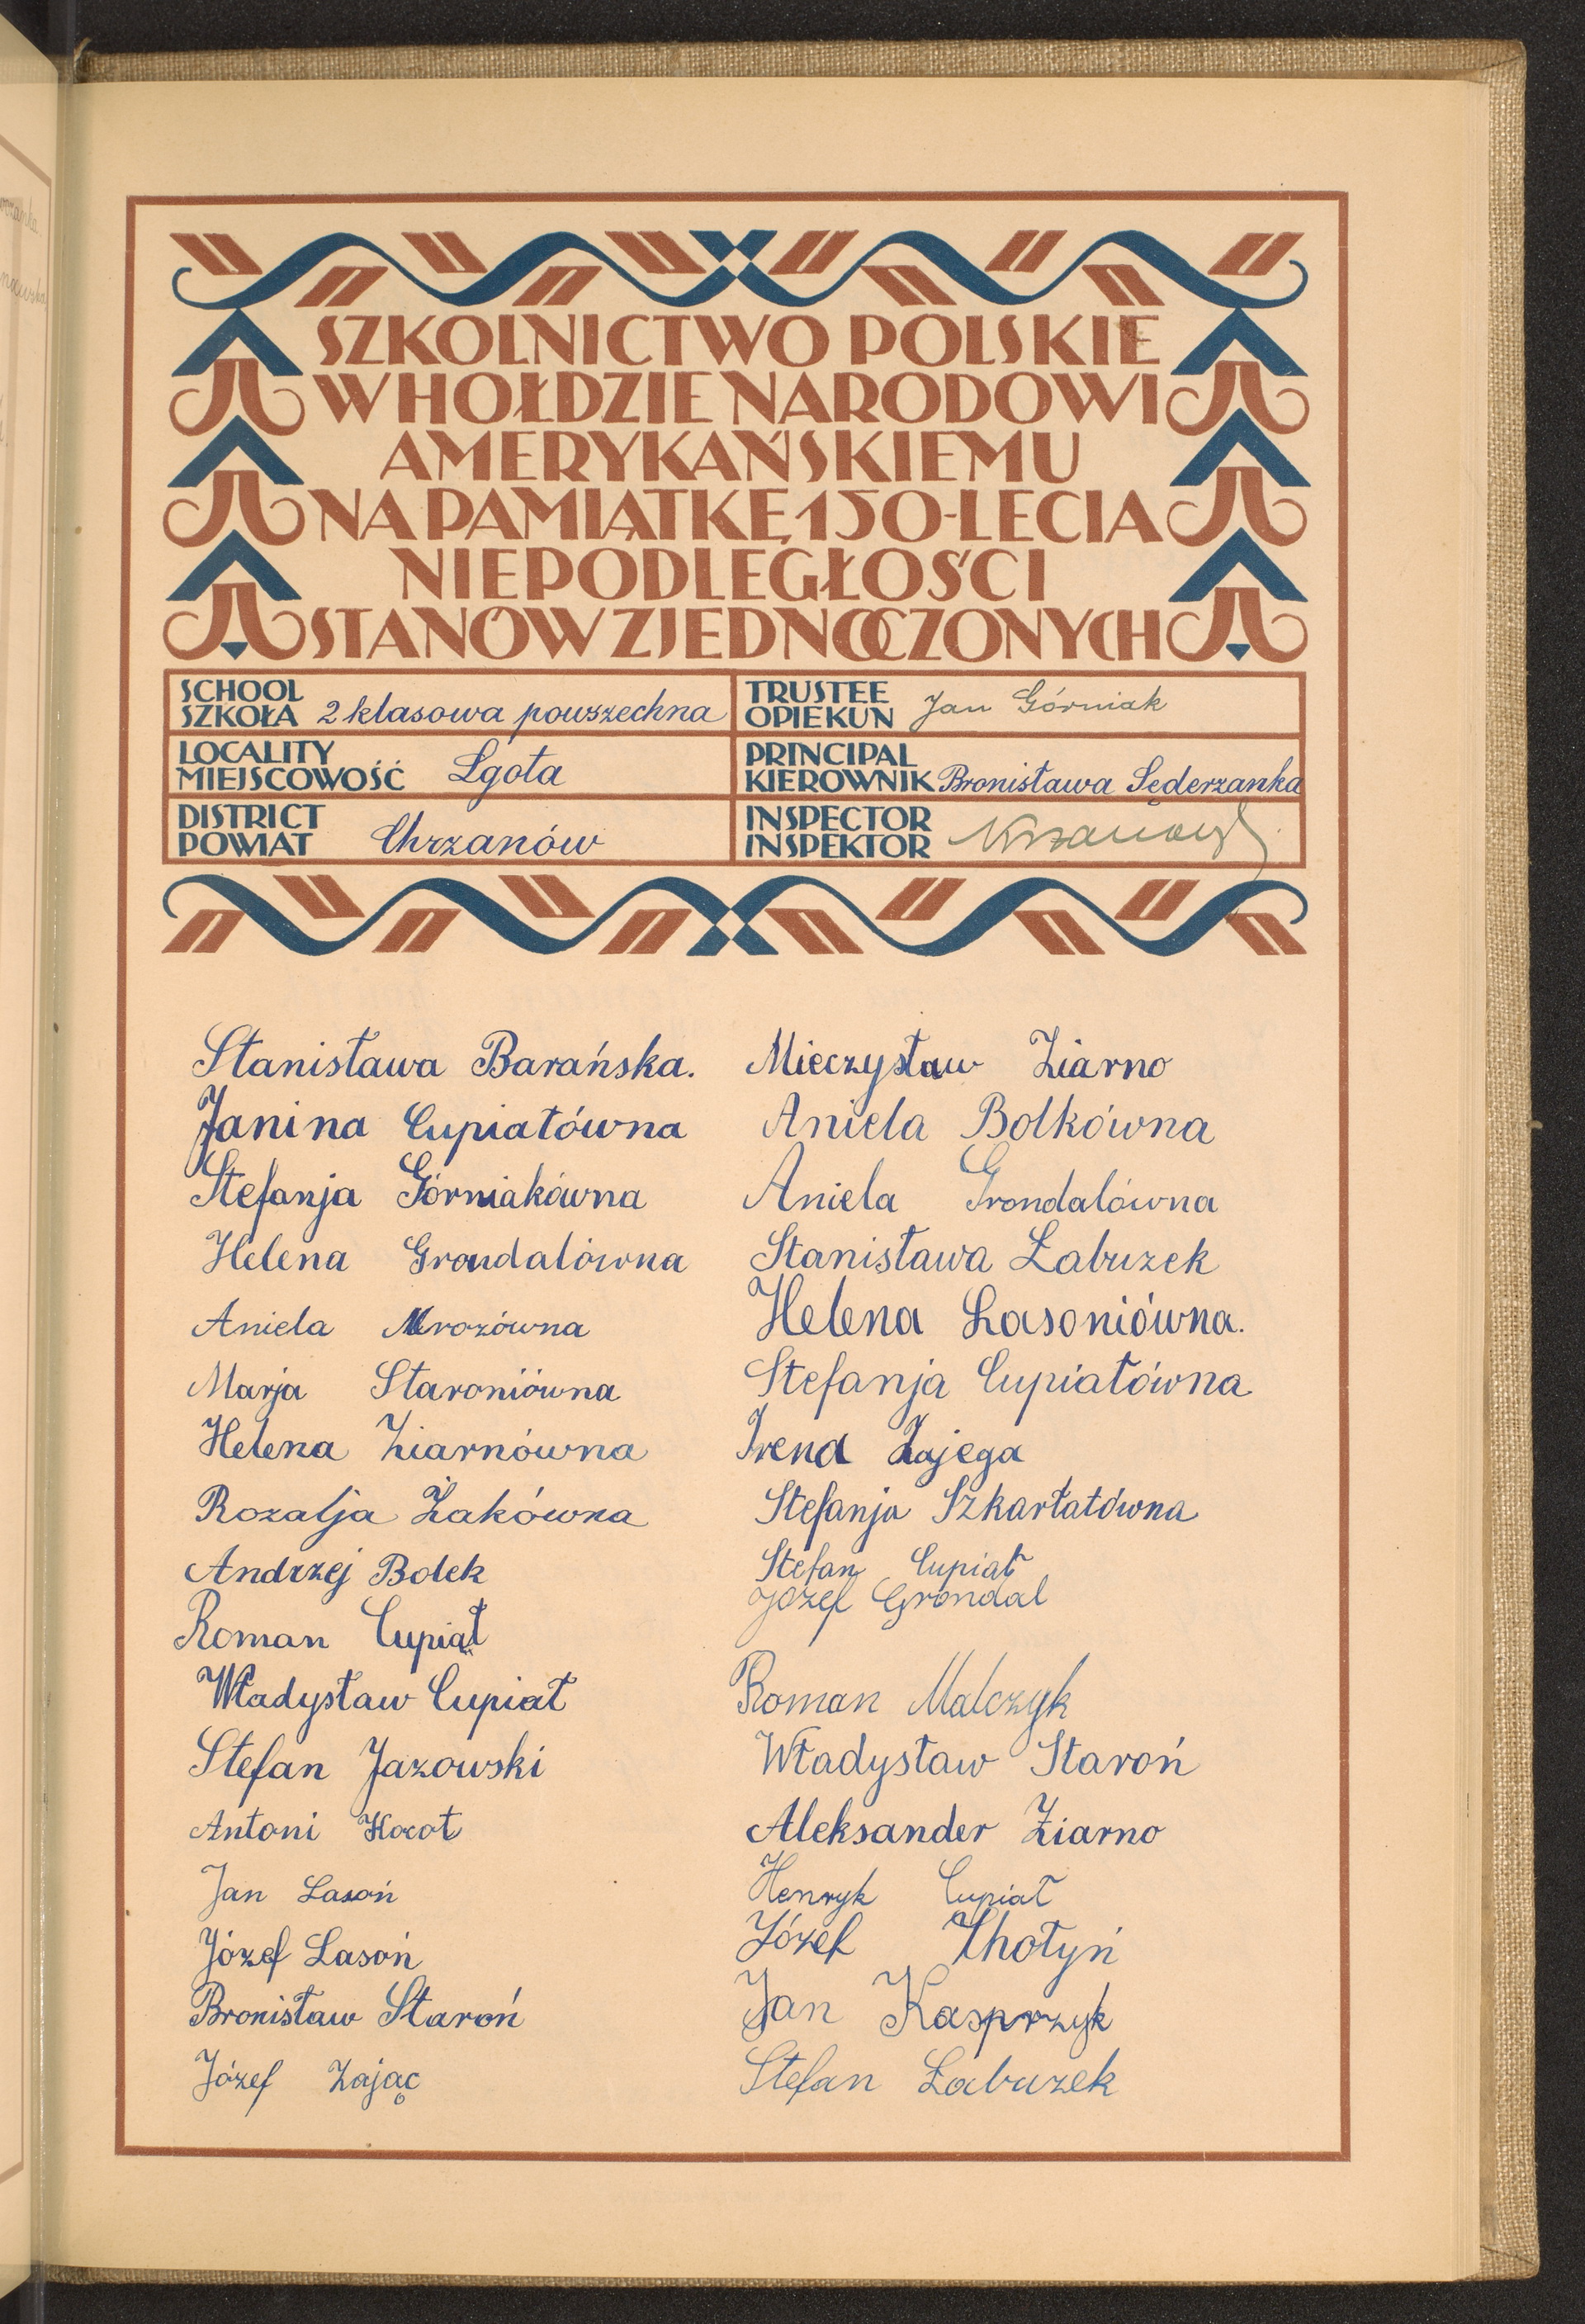 SZKOLNICTWO POLSKIE
W HOŁDZIE NARODOWI
AMERYKAŃSKIEMU
NA PAMIĄTKĘ 150-LECIA
NIEPODLEGŁOŚCI
STANÓW ZJEDNOCZONYCH
SCHOOL
SZKOŁA 2 klasowa powszechna
TRUSTEE
OPIEKUN Jan Górniak
LOCALITY
MIEJSCOWOŚĆ Lgota
PRINCIPAL
KIEROWNIK Bronisława Sęderzanka
DISTRICT
POWIAT Chrzanów
INSPECTOR
INSPEKTOR
Stanisława Barańska.
Janina Cupiałówna
Stefanja Górniakówna
Helena Grondalówna
Aniela Mrozówna
Marja Staroniówna
Helena Ziarnówna
Rozalja Żakówna
Andrzej Bolek
Roman Cupiał
Władysław Cupiał
Stefan Jazowski
Antoni Kocot
Jan Lasoń
Józef Lasoń
Bronisław Staroń
Józef Zając
Mieczysław Ziarno
Aniela Bolkówna
Aniela Grondalówna
Stanisława Łabuzek
Helena Lasoniówna.
Stefanja Cupiałówna
Irena Zajega
Stefanja Szkarłatówna
Stefan Cupiał
Józef Grondal
Roman Malczyk
Władysław Staroń
Aleksander Ziarno
Henryk Cupiał
Józef Chołyń
Jan Kasprzyk
Stefan Łabuzek